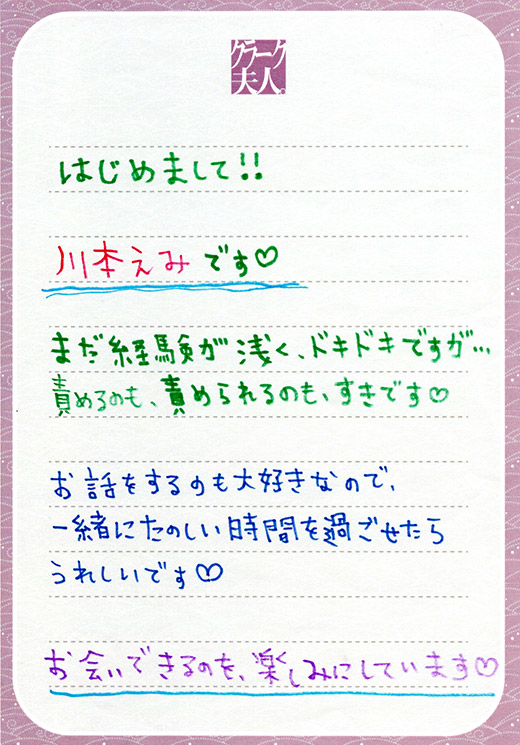 クラーク
夫人。
はじめまして!!
川本えみです♡
まだ経験が浅く、ドキドキですが…
責めるのも、責められるのも、すきです♡
お話をするのも大好きなので、
一緒にたのしい時間を過ごせたら
うれしいです♡
お会いできるのを、楽しみにしています♡